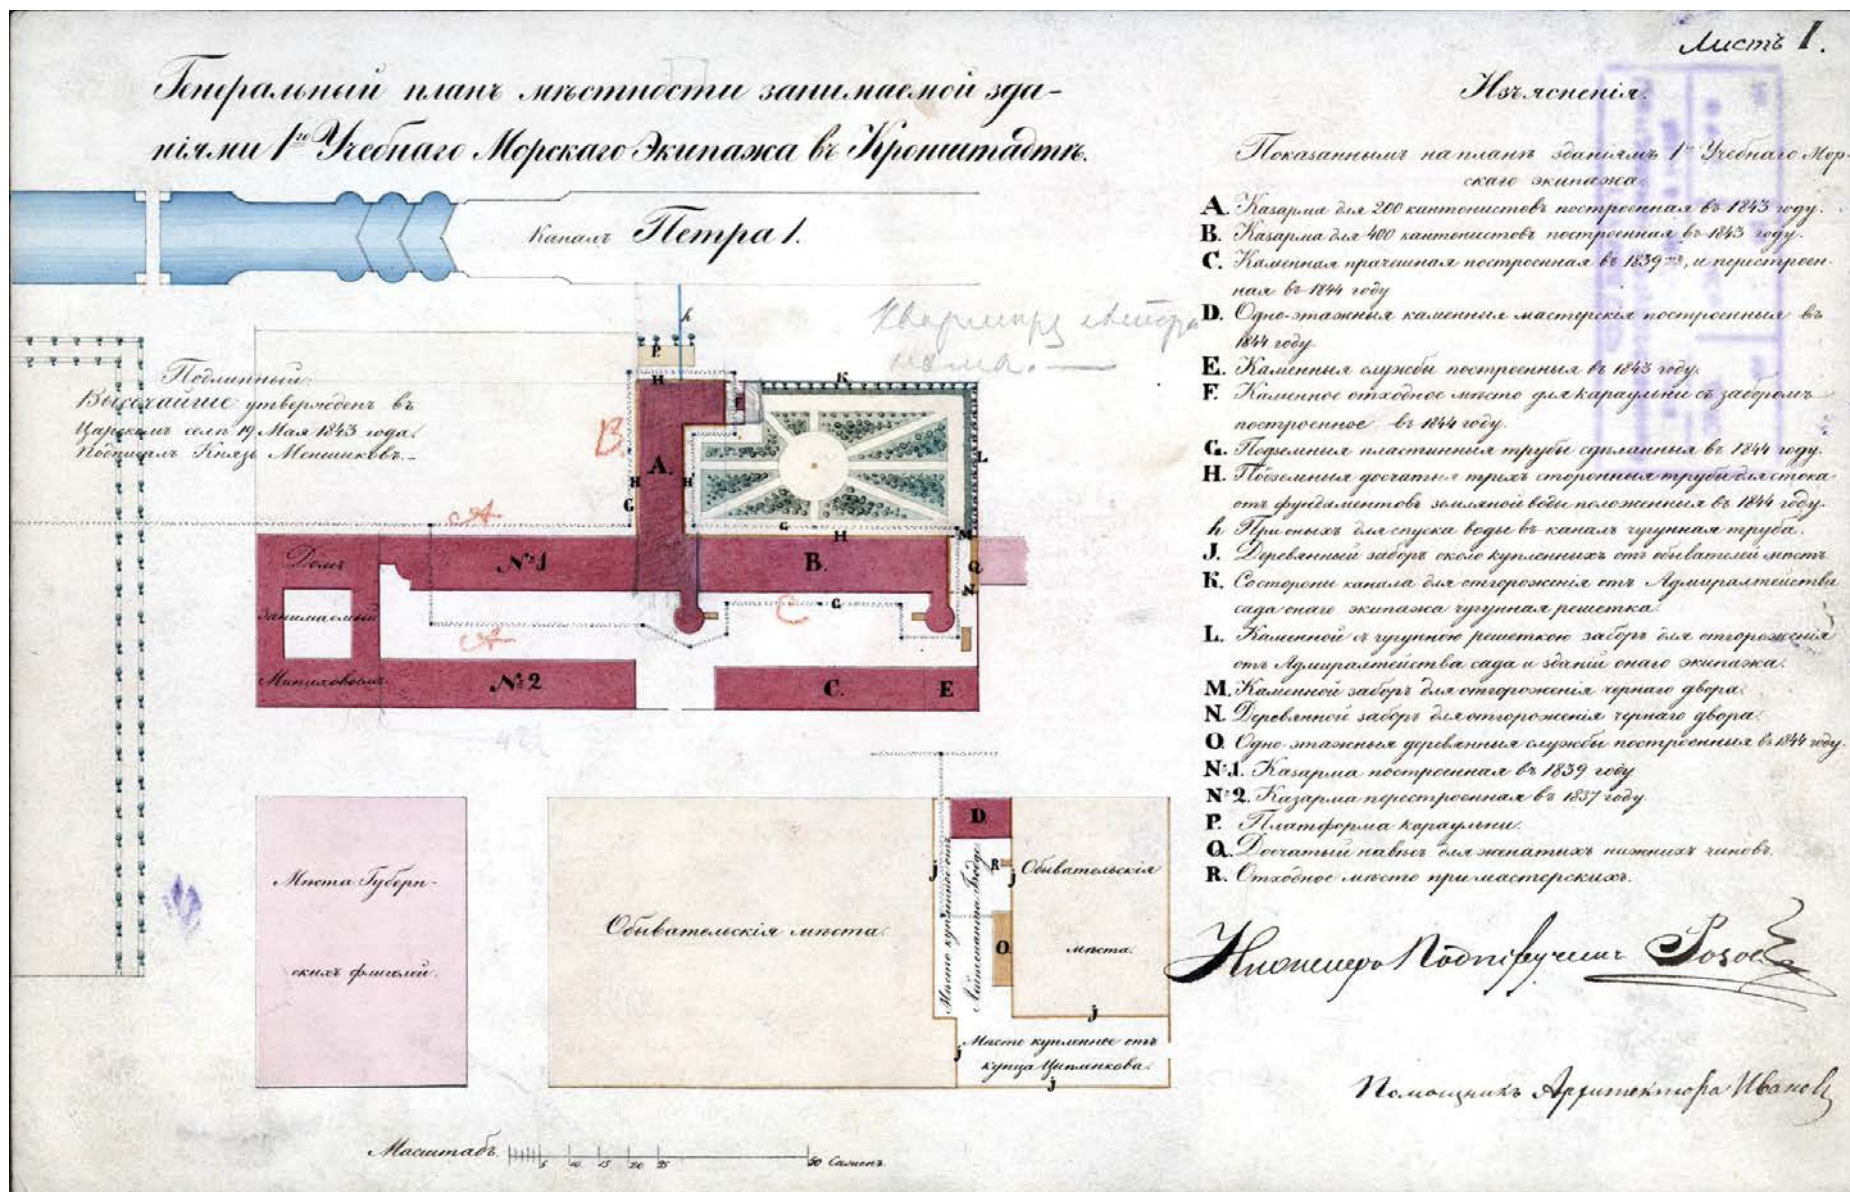 Листъ 1.
Генеральный планъ мѣстности занимаемой зда-
нiями 1го Учебнаго Морскаго Экипажа въ Кронштадтѣ.
Каналъ Петра 1.
h
P.
Подлинный:
Высочайше утвержденъ въ
Царскомъ селѣ 19 Мая 1843 года.
Подписалъ Князь Меншиковъ.
H
F
K
В
А.
L
H
H
G
G
А
H
M
Домъ
№1
B.
Q
N
занимаемый
С
G
А
Миниховымъ
№2
C.
E
Мѣста Губерн-
скихъ флигелей.
Обывательскiя мѣста.
D.
j
Мѣсто купленное отъ
Лейтенанта Бодде.
R
j
O.
Обывательскiя
мѣста.
j
j
Мѣсто купленное отъ
купца Цыпленкова.
j
Масштабъ
5 10 15 20 25 50 Саженъ.
Изъясненiя.
Показаннымъ на планѣ зданiямъ 1го Учебнаго Мор-
скаго экипажа.
A. Казарма для 200 кантонистовъ построенная въ 1843 году.
B. Казарма для 400 кантонистовъ построенная въ 1843 году.
C. Каменная прачешная построенная въ 1839мъ, и перестроен-
ная въ 1844 году
D. Одно-этажныя каменныя мастерскiя построенныя въ
1844 году.
E. Каменныя службы построенныя въ 1843 году.
F. Каменное отходное мѣсто для караульни съ заборомъ
построенное въ 1844 году.
G. Подземныя пластинныя трубы сдѣланныя въ 1844 году.
H. Подземныя досчатыя трехъ сторонныя трубы для стока
отъ фундаментовъ земляной воды положенныя въ 1844 году.
h При оныхъ для спуска воды въ каналъ чугунная труба.
J. Деревянный заборъ около купленныхъ отъ обывателей мѣстъ
K. Состороны канала для отгороженiя отъ Адмиралтейства
сада онаго экипажа чугунная решетка.
L. Каменной съ чугунною решеткою заборъ для отгороженiя
отъ Адмиралтейства сада и зданiй онаго экипажа.
M. Каменной заборъ для отгороженiя чернаго двора.
N. Деревянной заборъ для отгороженiя чернаго двора.
O. Одно-этажныя деревянныя службы построенныя въ 1844 году.
№1. Казарма построенная въ 1839 году
№2. Казарма перестроенная въ 1837 году.
P. Платформа караульни.
Q. Досчатый навѣсъ для женатыхъ нижнихъ чиновъ.
R. Отходное мѣсто при мастерскихъ.
Инженеръ Подпоручикъ
Помощникъ Архитектора Ивановъ